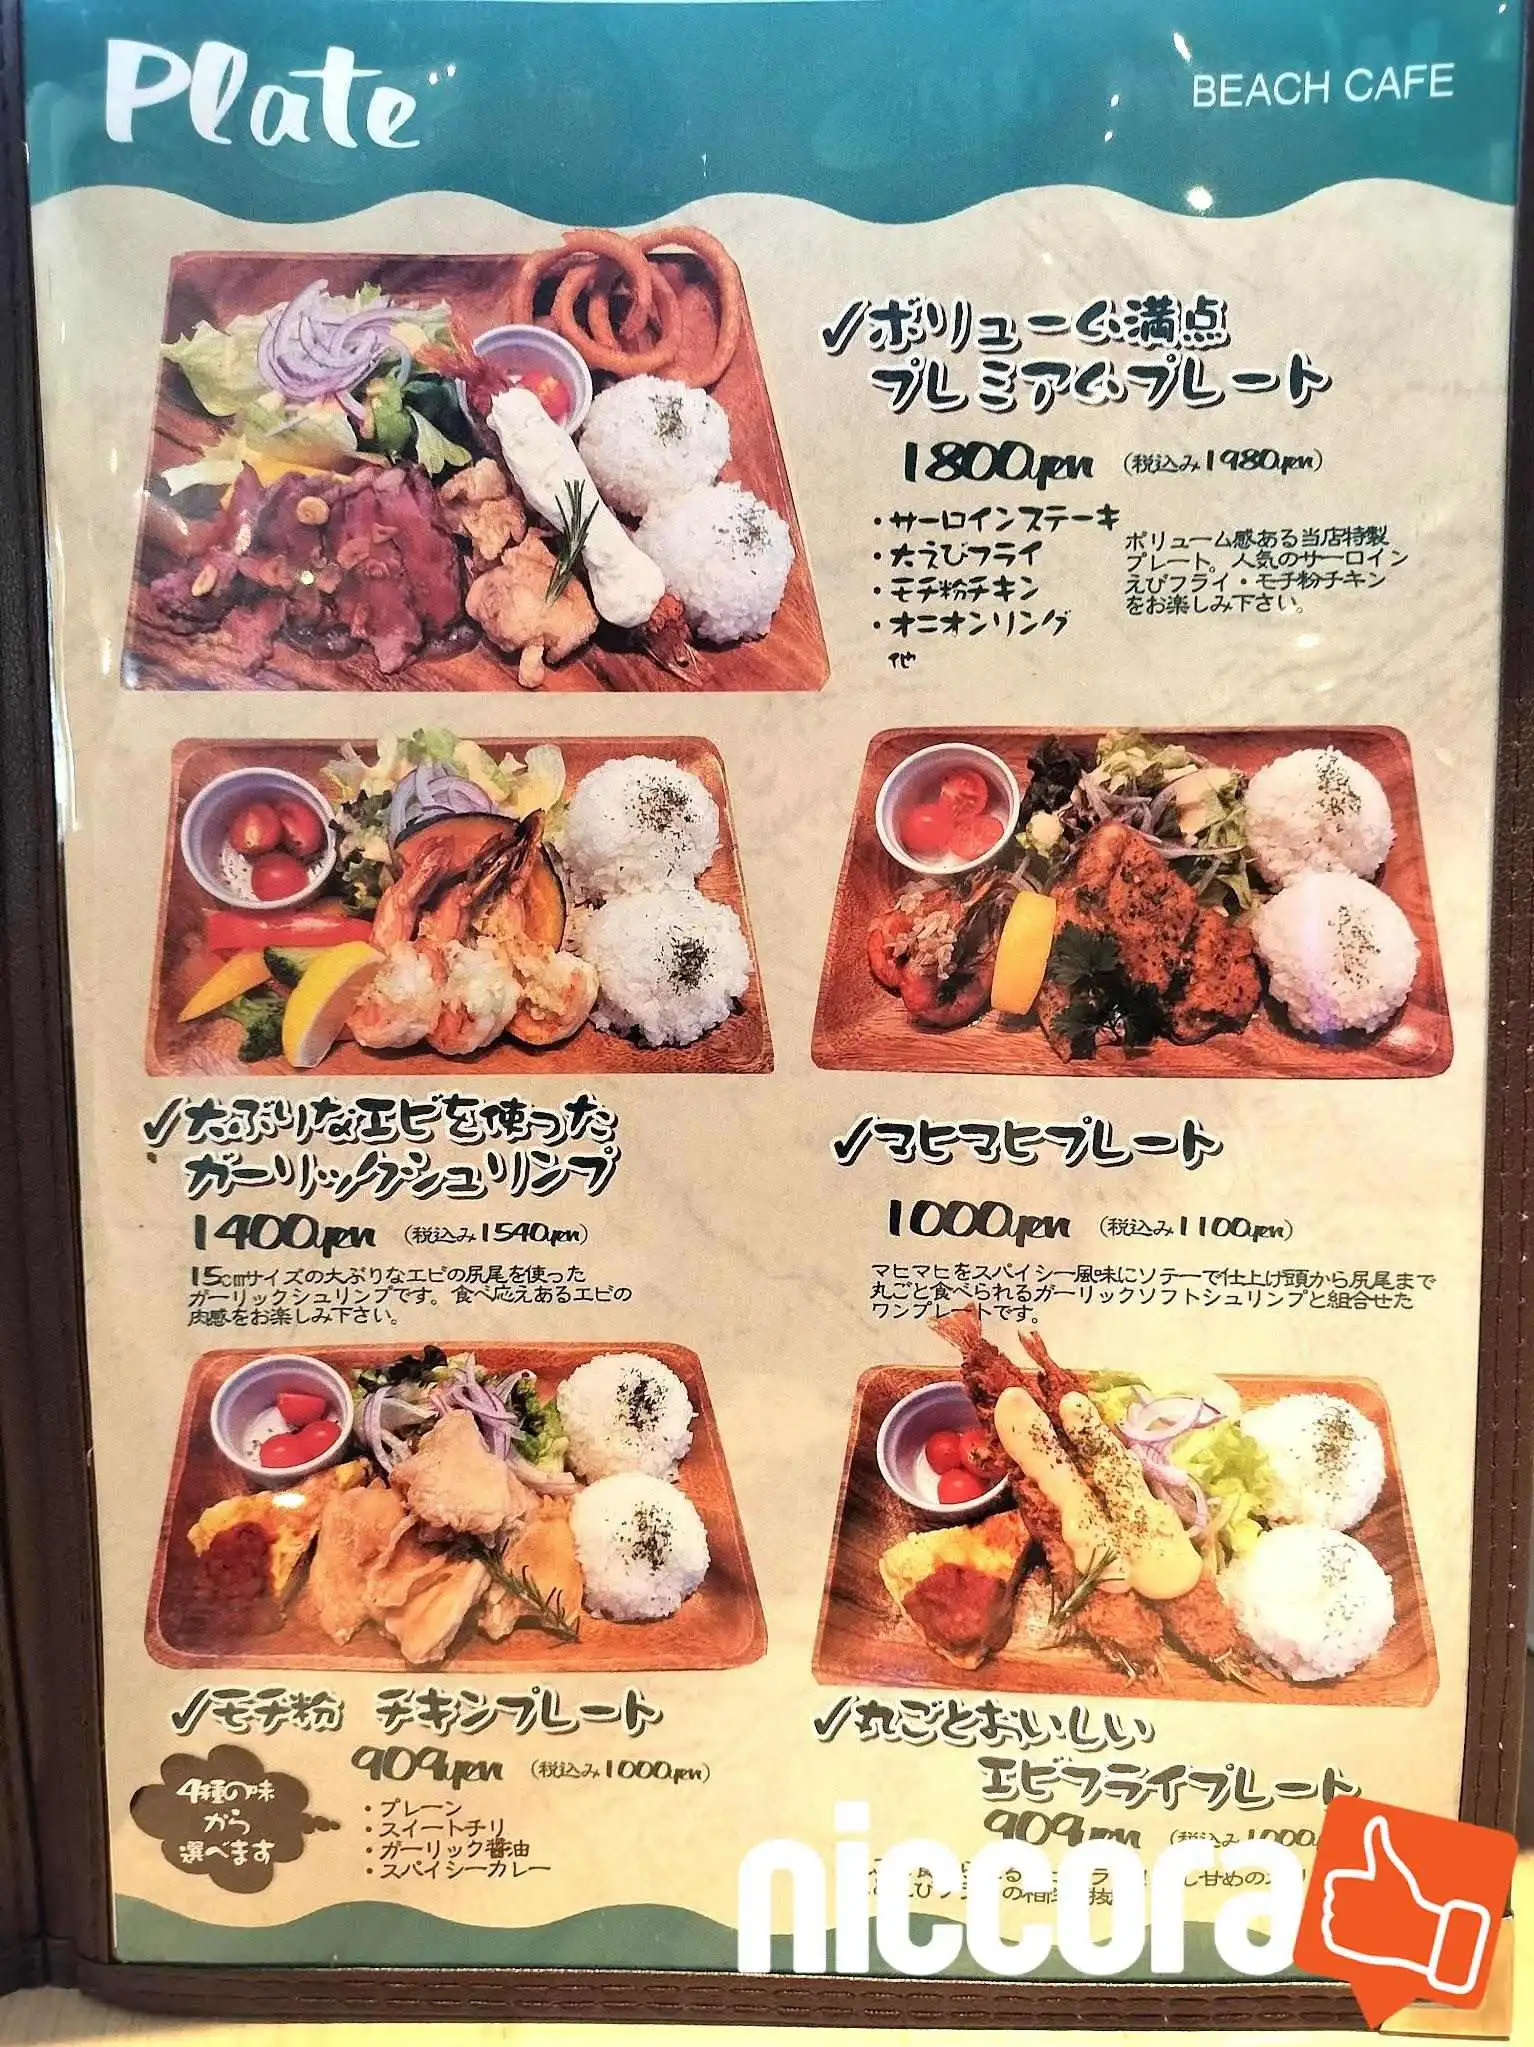 Plate
BEACH CAFE
✓ボリューム満点
プレミアムプレート
1800yen (税込み1980yen)
・サーロインステーキ
・大えびフライ
・モチ粉チキン
・オニオンリング
他
ボリューム感ある当店特製
プレート。人気のサーロイン
えびフライ・モチ粉チキン
をお楽しみ下さい。
✓大ぶりなエビを使った
ガーリックシュリンプ
1400yen (税込み1540yen)
15cmサイズの大ぶりなエビの尻尾を使った
ガーリックシュリンプです。食べ応えあるエビの
肉感をお楽しみ下さい。
✓マヒマヒプレート
1000yen (税込み1100yen)
マヒマヒをスパイシー風味にソテーで仕上げ頭から尻尾まで
丸ごと食べられるガーリックソフトシュリンプと組合せた
ワンプレートです。
✓モチ粉 チキンプレート
909yen (税込み1000yen)
4種の味
から
選べます
・プレーン
・スイートチリ
・ガーリック醤油
・スパイシーカレー
✓丸ごとおいしい
エビフライプレート
909yen (税込み1000
niccora